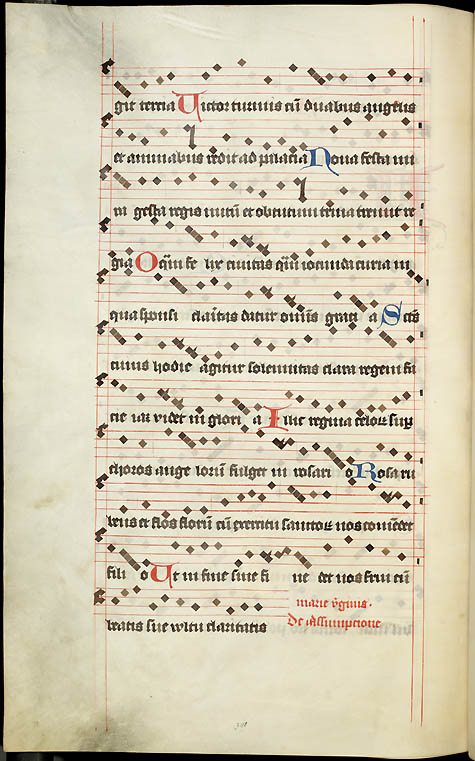 git tercia Victor turmis cū duabus angelus
et animabus redit ad palacia Noua festa mi
ra gesta regis nutū et obtutum trina treuiit re
gia O q̄m fe lix ciuitas q̄m iocunda curia in
qua sponsi claritas datur omnis grati a Sctōs
cuius hodie agitur solemnitas clara regem fa
cie iar videt in glori a Illic regina celoꝝ sup
choros ange lorum fulget in rosari o Rosa ru
bens et flos florū cū exercitu sanctoꝝ nos cōmēdet
fili o Ut in fine sine fi ne det nos frui cū
beatis sue vultu claritatis
marie v̄ginis.
De Assumptione